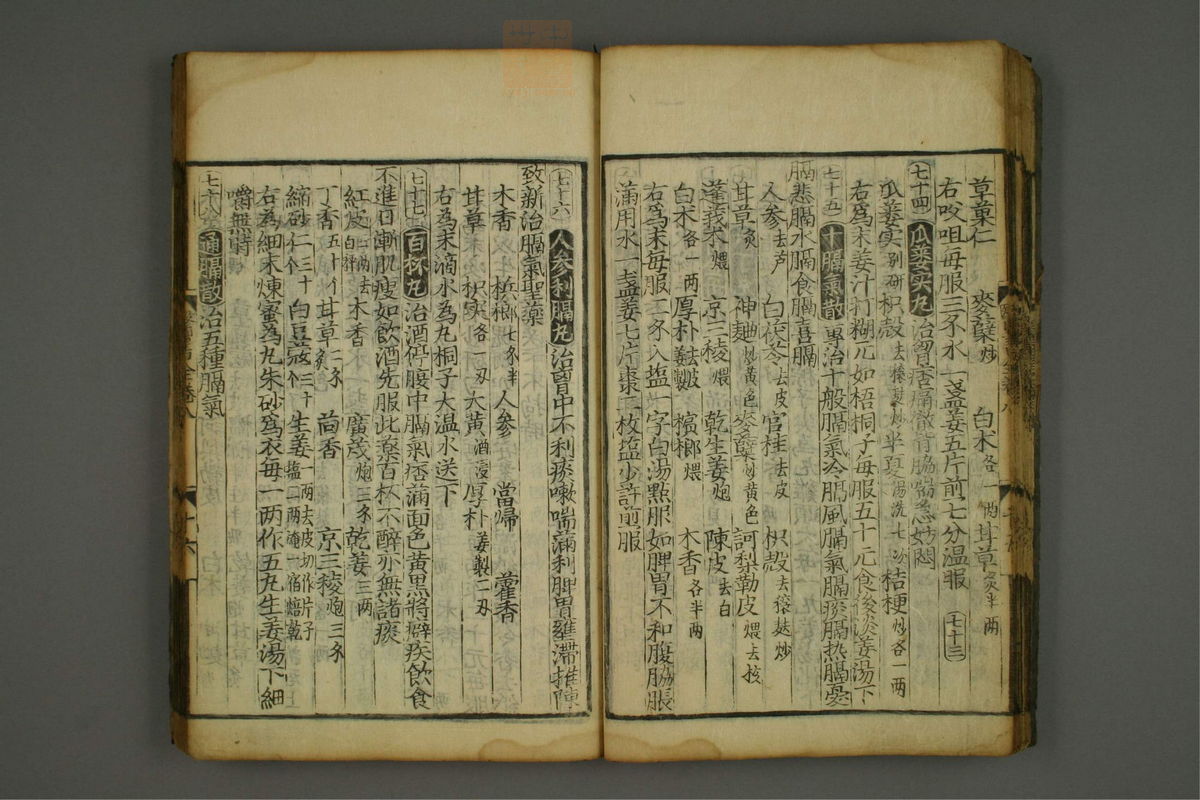 草菓仁 麥蘖炒 白朮各一两 甘草炙半两
右㕮咀每服三不水一盞姜五片煎七分温服 七十三
七十四 瓜蔞实丸 治胷痞痛徹背脇喘急妨悶
瓜蔞实别研 枳殻去穰麸炒 半夏湯洗七次 桔梗炒各一两
右為末姜汁打糊丸如梧桐子每服五十丸食後淡姜湯下
七十五 十膈氣散 專治十般膈氣冷膈風膈氣膈痰膈热膈憂
膈悲膈水膈食膈喜膈
人参去芦 白茯苓去皮 官桂去皮 枳殻去穰麸炒
甘草炙 神麯炒黄色 麥蘖炒黄色 訶梨勒皮煨去核
蓬莪朮煨 京三稜煨 乾生姜炮 陳皮去白
白朮各一两 厚朴姜製 檳榔煨 木香各半两
右為末每服一錢入塩一字白湯點服如脾胃不和腹脇脹
滿用水一盞姜七片棗二枚塩少許煎服
七十六 人参利膈丸 治胷中不利痰嗽喘滿利脾胃壅滞推陳
致新治膈氣聖藥
木香 梹榔七錢半 人参 當帰 藿香
甘草 枳实各一两 大黄酒浸 厚朴姜製二两
右為末滴水為丸桐子大温水送下
七十七 百杯丸 治酒停腹中膈氣痞滿面色黄黒將癖疾飲食
不進日漸肌瘦如飲酒先服此藥百杯不醉亦無諸痰
紅皮 木香 廣茂炮三錢 乾姜三两
丁香五十个 甘草二錢炙 茴香 京三稜炮三錢
縮砂仁三十个 白豆蔲三十个 生姜一两去皮切作片子塩二两淹一宿焙乾
右為細末煉蜜為丸朱砂為衣每一两作五丸生姜湯下細
嚼無時
七十八 通膈散 治五種膈氣